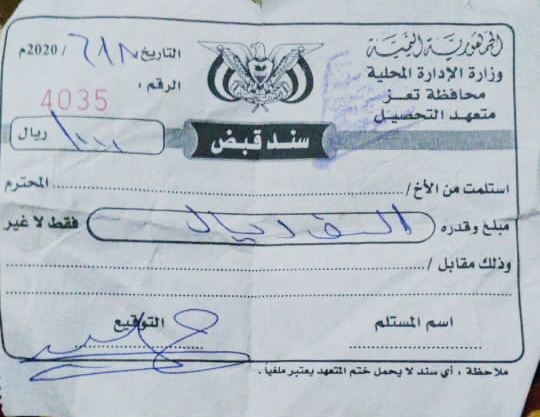 الجمهورية اليمنية
وزارة الإدارة المحلية
محافظة تعز
متعهد التحصيل
التاريخ ٦/٨ / 2020م
الرقم :
4035
سند قبض
١٠٠٠ ريال
استلمت من الأخ / المحترم
مبلغ وقدره الف ريال فقط لا غير
وذلك مقابل /
اسم المستلم
التوقيع
ملاحظة : أي سند لا يحمل ختم المتعهد يعتبر ملغياً .